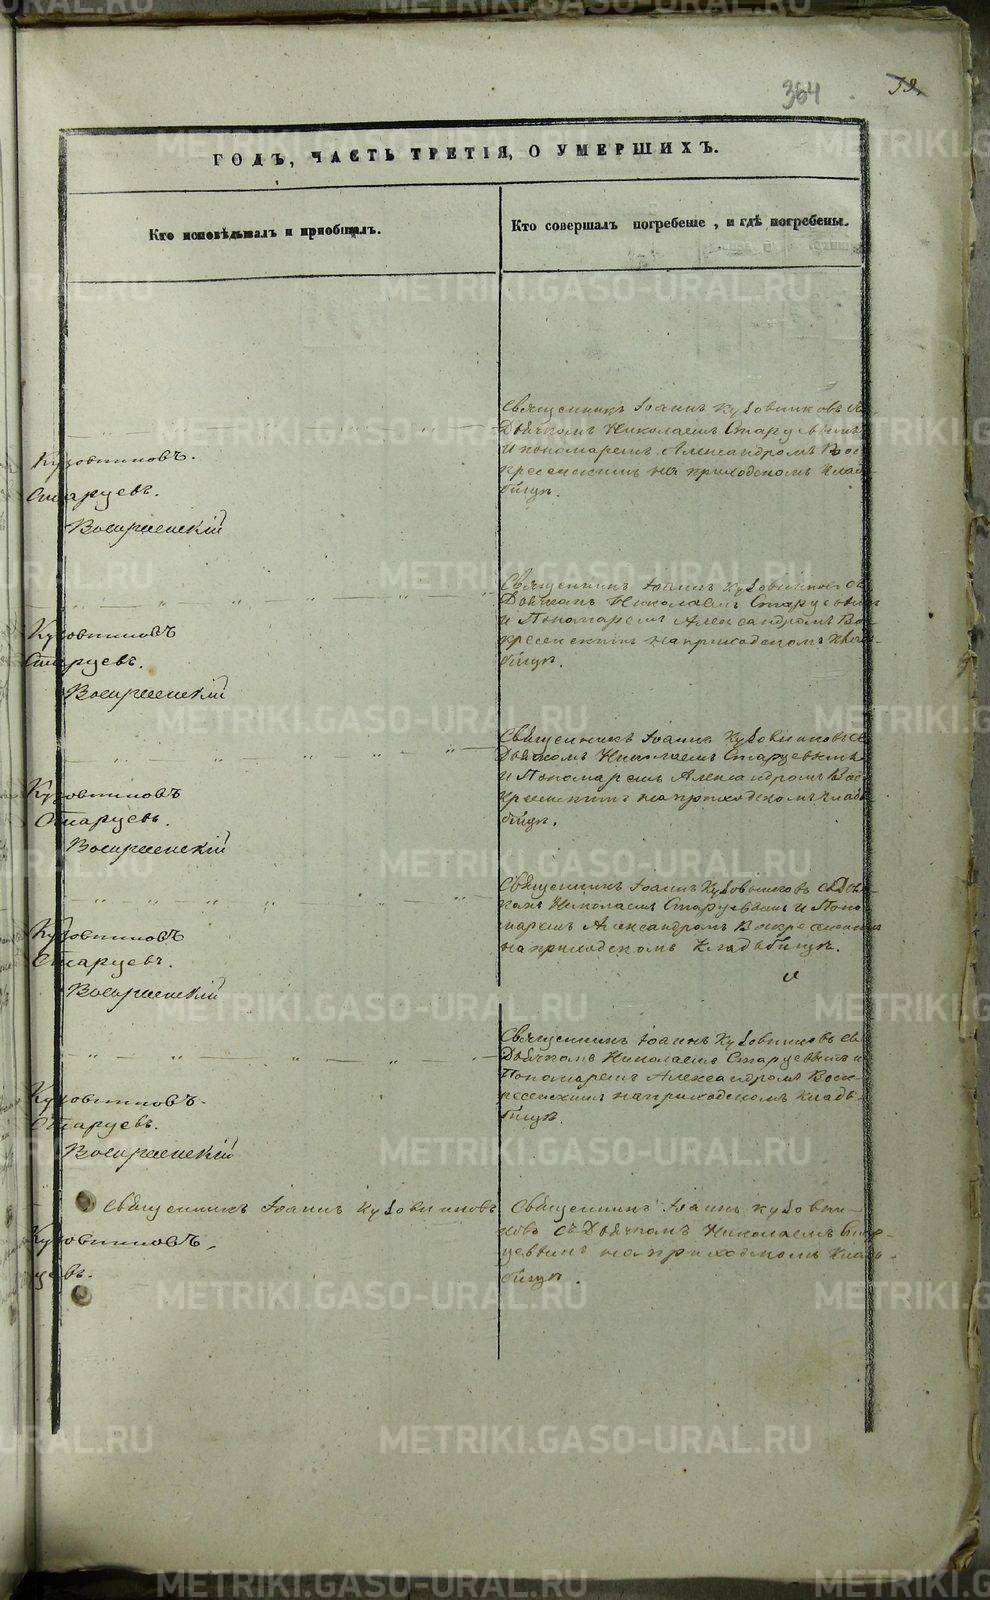 364 59,
ГОДЪ, ЧАСТЬ ТРЕТІЯ, О УМЕРШИХЪ.
Кто исповѣдывалъ и пріобщалъ.
Кто совершалъ погребеніе, и гдѣ погребены.
Священникъ Іоаннъ Кузовниковъ съ
Дьячкомъ Николаемъ Старцевымъ
и пономаремъ Александромъ Вос
кресенскимъ на приходскомъ клад
бищѣ.
Кузовниковъ.
Старцевъ.
Воскресенскій
Священникъ Іоаннъ Кузовниковъ съ
Дьячкомъ Николаемъ Старцевымъ
и Пономаремъ Александромъ Вос
кресенскимъ на приходскомъ клад-
бищѣ.
Кузовниковъ
Старцевъ.
Воскресенскій
Священникъ Іоаннъ Кузовниковъ съ
Дьячкомъ Николаемъ Старцевымъ
и Пономаремъ Александромъ Вос
кресенскимъ на приходскомъ кладь
бищѣ.
Кузовниковъ
Старцевъ.
Воскресенскій
Священникъ Іоаннъ Кузовниковъ съ Дья-
чкомъ Николаемъ Старцевымъ и Поно
маремъ Александромъ Воскресенскимъ
на приходскомъ Кладьбищѣ.
Кузовниковъ
Старцевъ.
Воскресенскій
Священникъ Іоаннъ Кузовниковъ съ
Дьячкомъ Николаемъ Старцевымъ и
Пономаремъ Александромъ Воск-
ресенскимъ на приходскомъ Кладь-
бищѣ.
Кузовниковъ.
Старцевъ.
Воскресенскій
Священникъ Іоаннъ Кузовниковъ
Священникъ Іоаннъ Кузовни-
ковъ съ Дьячкомъ Николаемъ Стар-
цевымъ на приходскомъ Кладь-
бищѣ.
Кузовниковъ,
цевъ.
METRIKI.GASO-URAL.RU